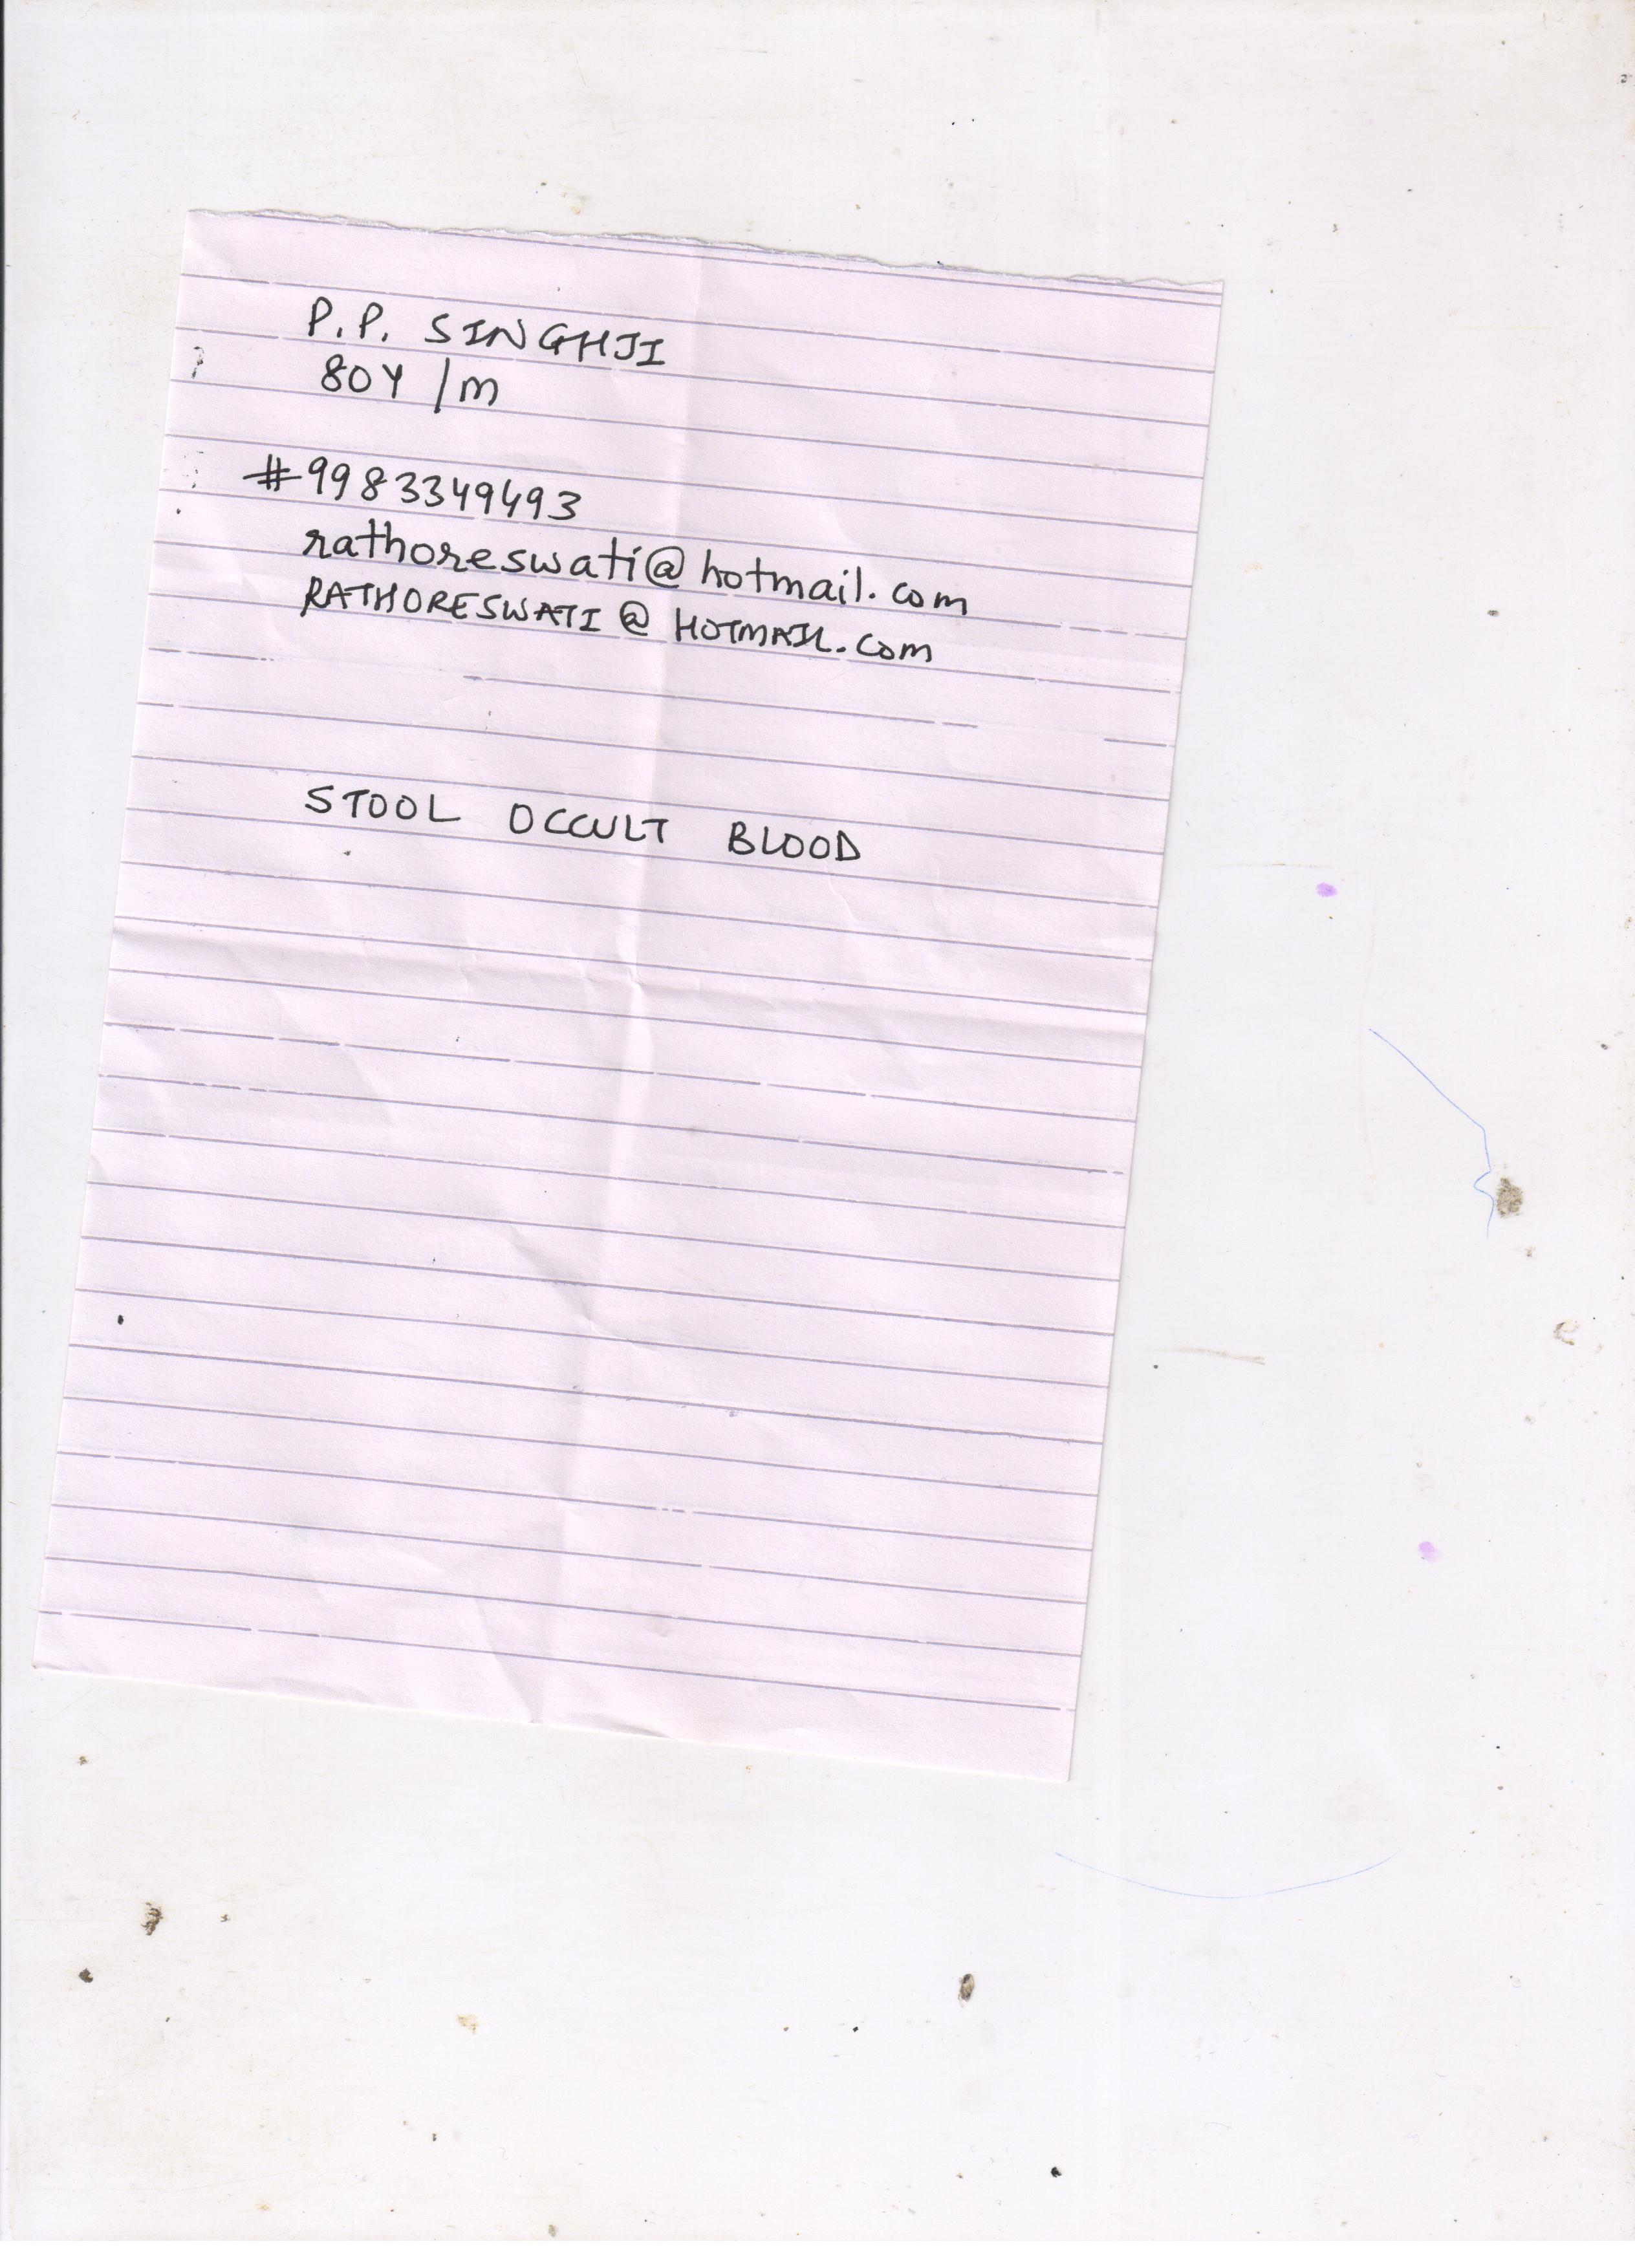 P.P. SINGHJI
80Y /M
#9983349493
rathoreswati@hotmail.com
RATHORESWATI@HOTMAIL.com
STOOL OCCULT BLOOD